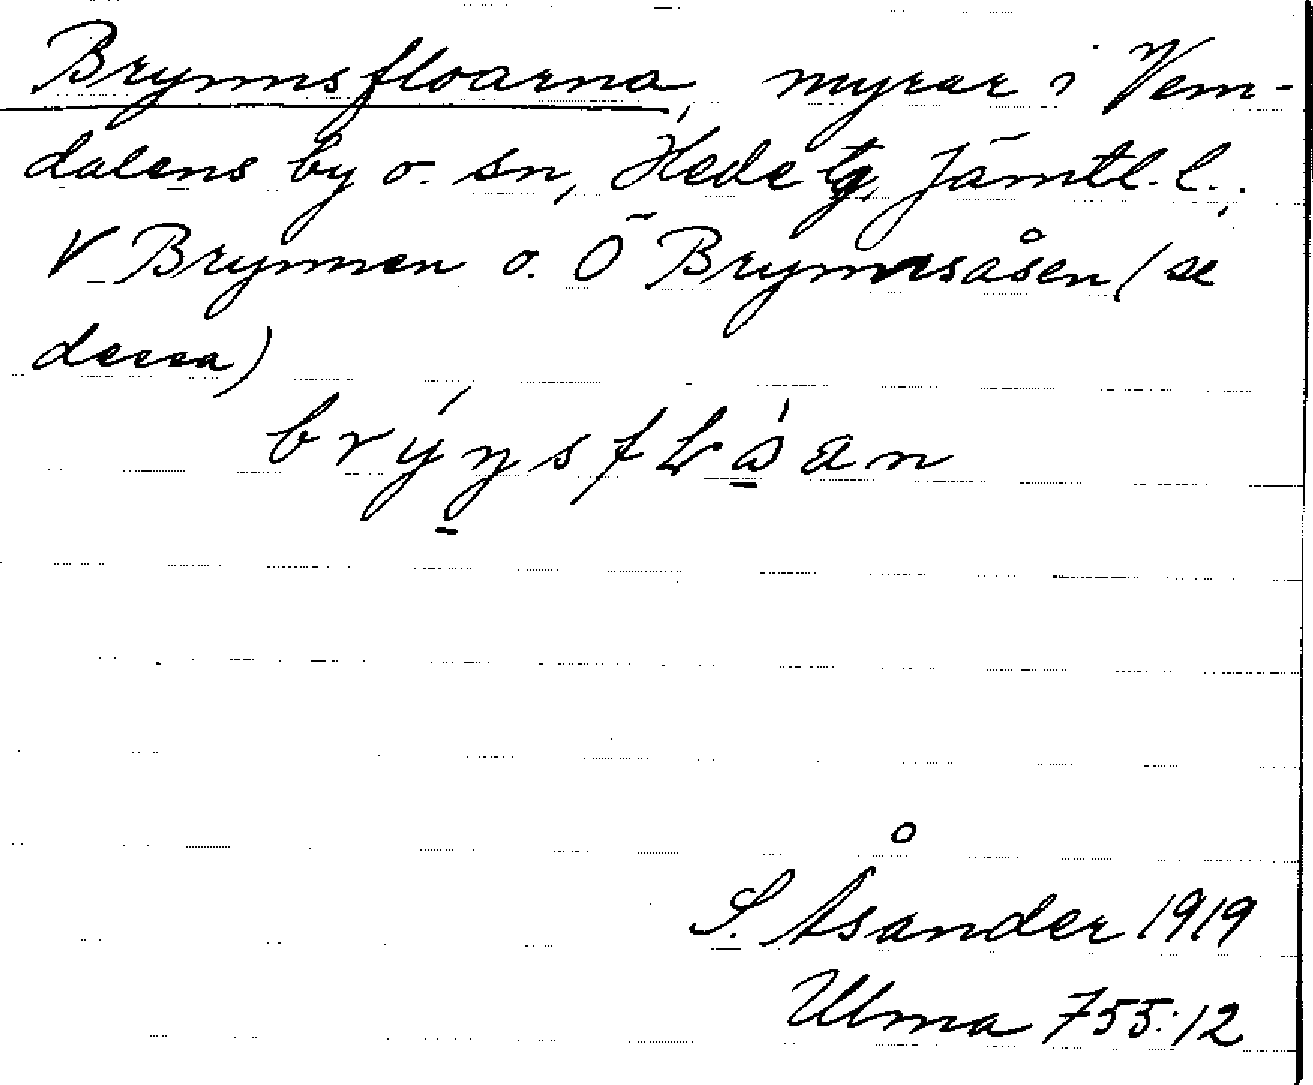 Brynnsfloarna, myrar i Vem-
dalens by o. sn, Hede tg, Jämtl. l.;
V Brynnen o. Ö Brynnsåsen (se
dessa)
S. Åsander 1919
Ulma 755:12